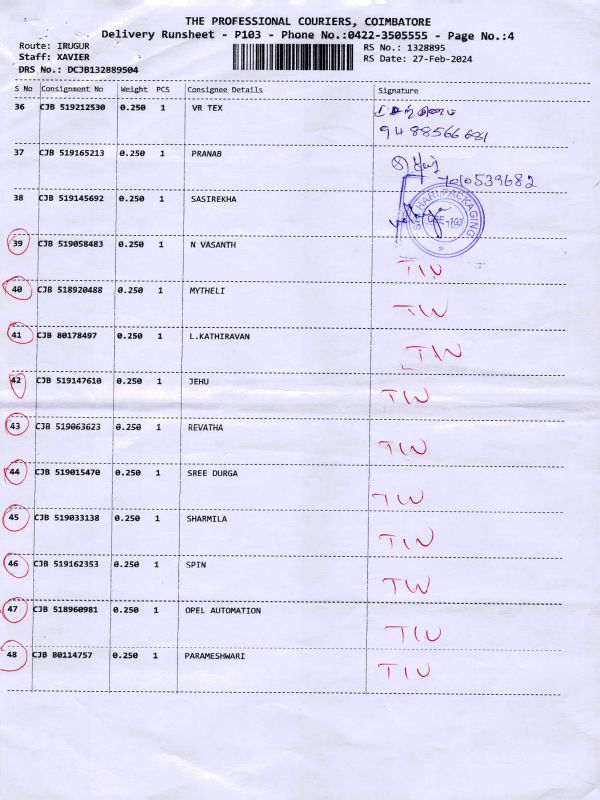 THE PROFESSIONAL COURIERS, COIMBATORE
Delivery Runsheet - P103 - Phone No.:0422-3505555 - Page No.:4
Route: IRUGUR RS No.: 1328895
Staff: XAVIER RS Date: 27-Feb-2024
DRS No.: DCJB132889504
S No Consignment No Weight PCS Consignee Details Signature
36 CJB 519212530 0.250 1 VR TEX
37 CJB 519165213 0.250 1 PRANAB
7010539682
38 CJB 519145692 0.250 1 SASIREKHA
HARI PACKAGING
39 CJB 519058483 0.250 1 N VASANTH
TIN
40 CJB 518920488 0.250 1 MYTHELI
TIN
41 CJB 80178497 0.250 1 L.KATHIRAVAN
TIN
42 CJB 519147610 0.250 1 JEHU
TIN
43 CJB 519063623 0.250 1 REVATHA
TIN
44 CJB 519015470 0.250 1 SREE DURGA
TIN
45 CJB 519033138 0.250 1 SHARMILA
TIN
46 CJB 519162353 0.250 1 SPIN
TIN
47 CJB 518960981 0.250 1 OPEL AUTOMATION
TIN
48 CJB 80114757 0.250 1 PARAMESHWARI
TIN